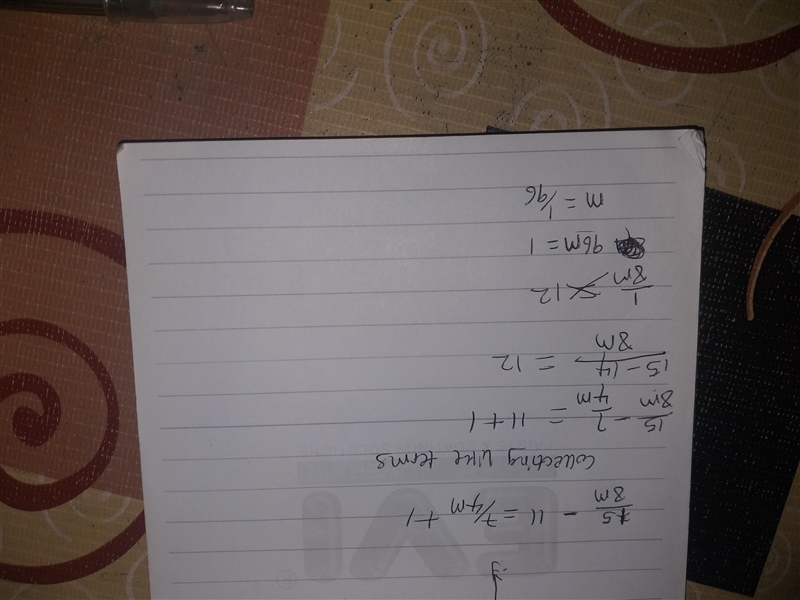 15/8m - 11 = 7/4m + 1
Collecting like terms
15/8m - 7/4m = 11 + 1
15 - 14/8m = 12
1/8m = 12
96m = 1
m = 1/96